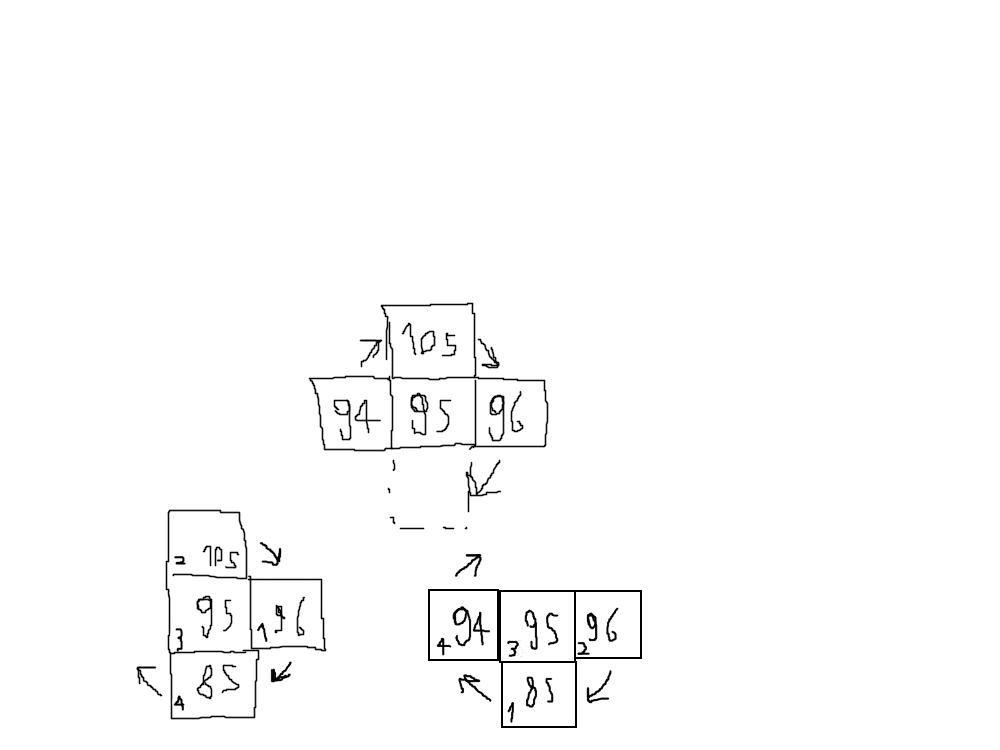 105
94 95 96
2 105
3 95 1 96
4 85
4 94 3 95 2 96
1 85